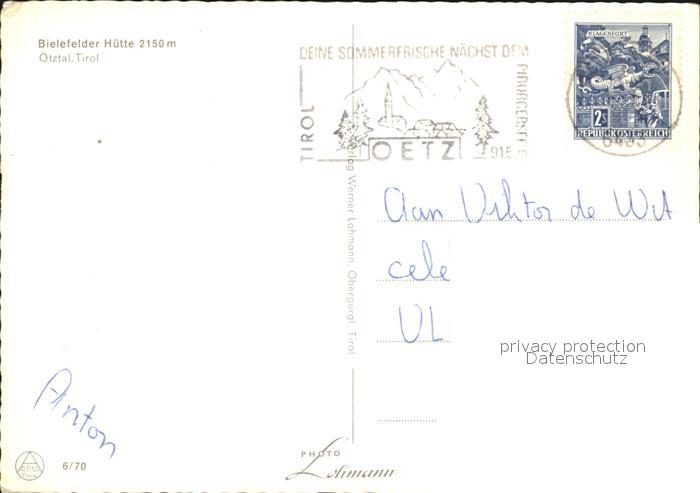 Bielefelder Hütte 2150 m
Ötztal, Tirol
DEINE SOMMERFRISCHE NÄCHST DEM
PIBURGERSEE
TIROL
OETZ
KLAGENFURT
2S
REPUBLIK ÖSTERREICH
Verlag Werner Lohmann, Obergurgl, Tirol
Aan Viktor de Wit
cele
VL
privacy protection
Datenschutz
Anton
ALPINA
6/70
PHOTO
Lohmann